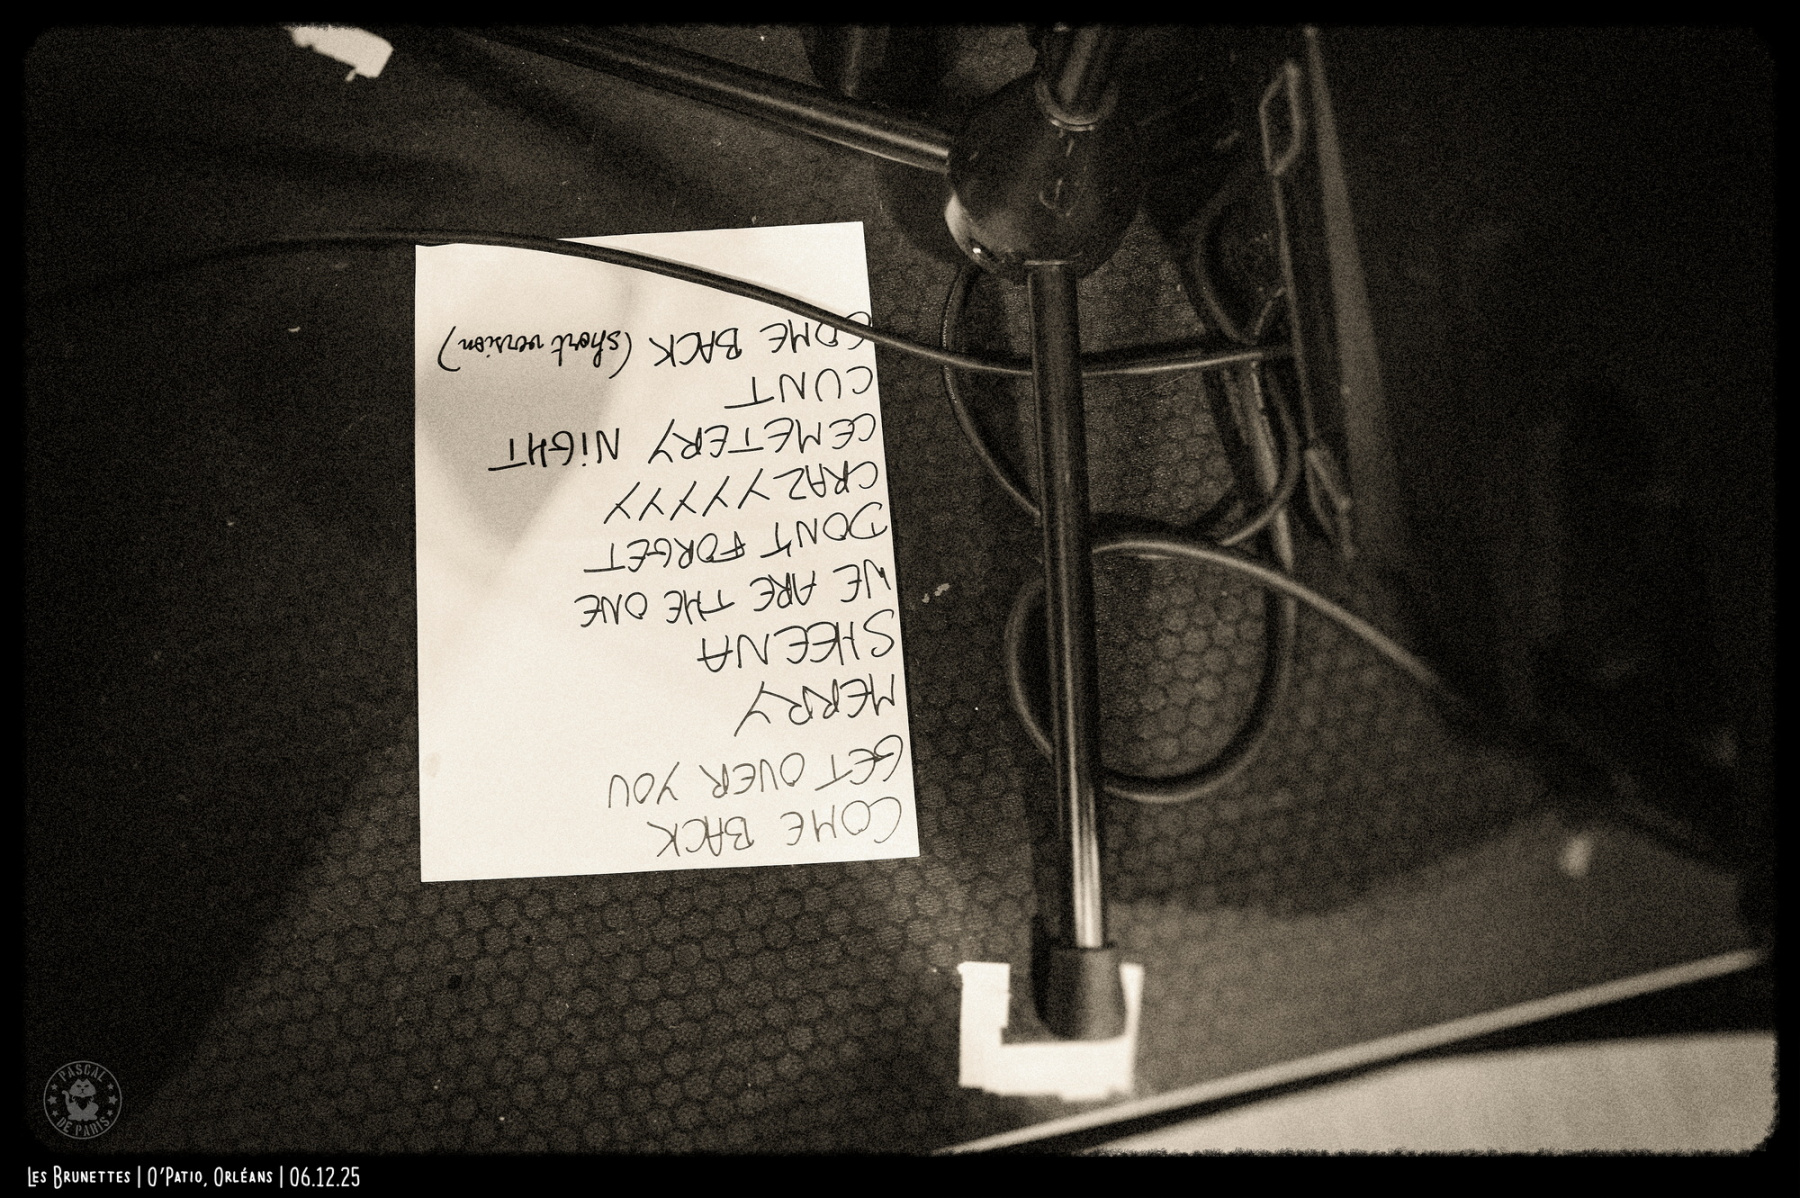 COME BACK
GET OVER YOU
MERRY
SHEENA
WE ARE THE ONE
DON'T FORGET
CRAZYYYYY
CEMETERY NIGHT
CUNT
COME BACK (short version)
PASCAL
DE PARIS
LES BRUNETTES | O'PATIO, ORLÉANS | 06.12.25